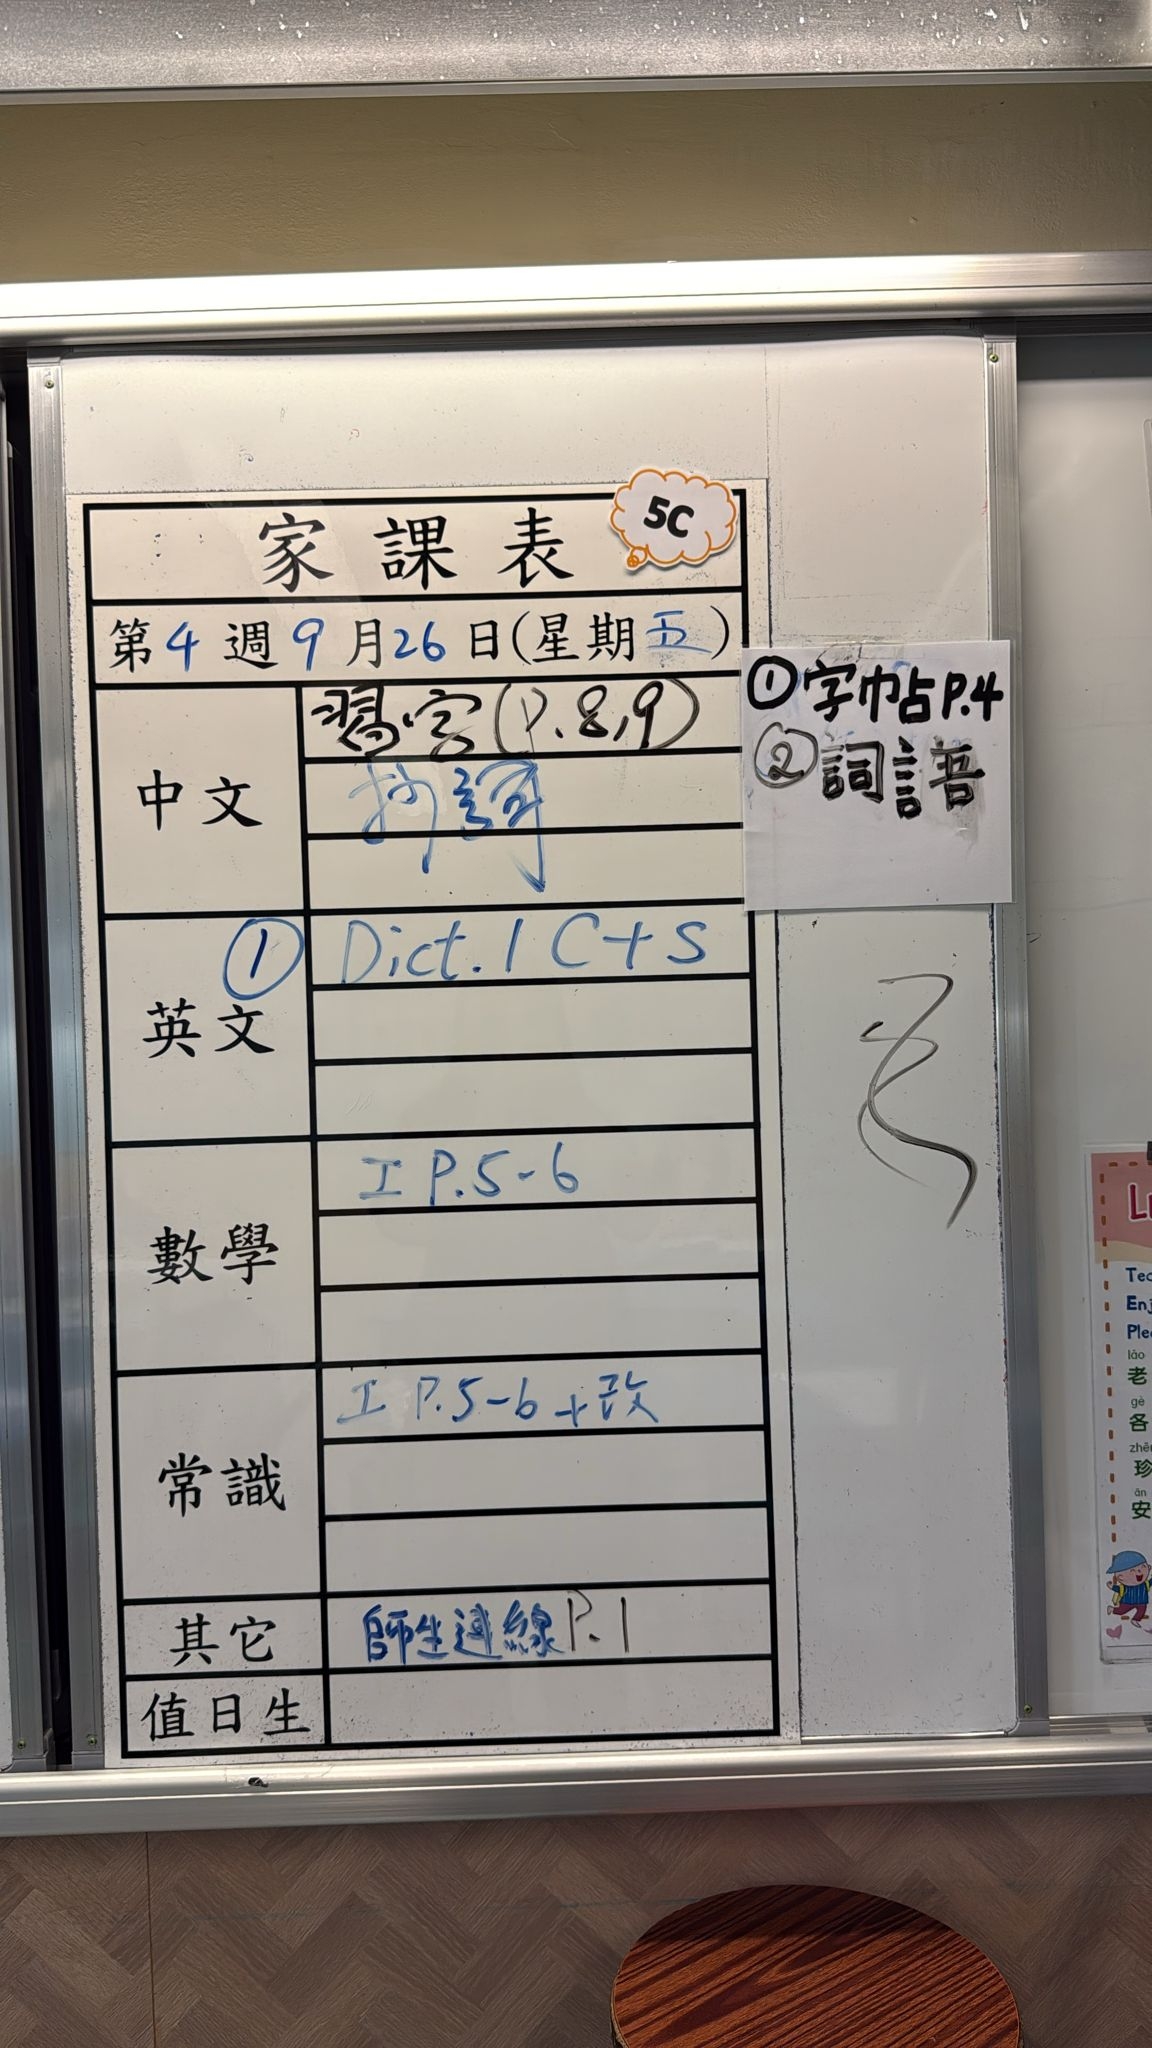 家課表
5C
第4週9月26日(星期五)
中文
習字(P.8,9)
抄詞
①字帖P.4
②詞語
英文
① Dict. 1 C+S
數學
工 P.5-6
常識
工 P.5-6 +改
其它
師生連線P.1
值日生
Enj
lǎo
老
gè
各
珍
ān
安